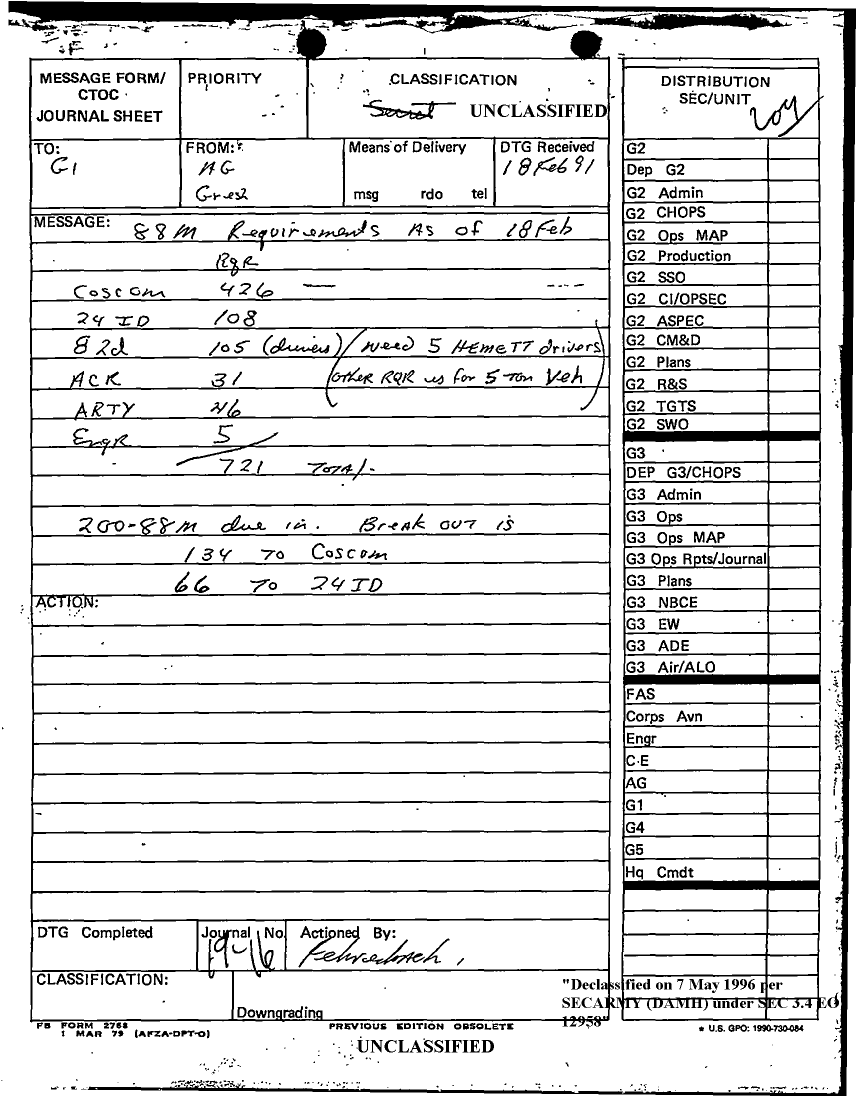 MESSAGE FORM/
CTOC
JOURNAL SHEET
PRIORITY
CLASSIFICATION
Secret UNCLASSIFIED
DISTRIBUTION
SEC/UNIT
TO:
G1
FROM:
AG
Means of Delivery
msg rdo tel
DTG Received
18 Feb 91
MESSAGE: 88M Requirements As of 18 Feb
RQR
Coscom 426 —
24 ID 108
82d 105 (drivers) (Need 5 HEMETT drivers
ACR 31 other RQR is for 5 Ton Veh)
ARTY 46
EngR 5
721 Total
200-88M due in. Break out is
134 TO Coscom
66 TO 24 ID
ACTION:
DTG Completed
Journal No.
19-16
Actioned By:
CLASSIFICATION:
Downgrading
G2
Dep G2
G2 Admin
G2 CHOPS
G2 Ops MAP
G2 Production
G2 SSO
G2 CI/OPSEC
G2 ASPEC
G2 CM&D
G2 Plans
G2 R&S
G2 TGTS
G2 SWO
G3
DEP G3/CHOPS
G3 Admin
G3 Ops
G3 Ops MAP
G3 Ops Rpts/Journal
G3 Plans
G3 NBCE
G3 EW
G3 ADE
G3 Air/ALO
FAS
Corps Avn
Engr
C-E
AG
G1
G4
G5
Hq Cmdt
"Declassified on 7 May 1996 per
SECARMY (DAMH) under SEC 3.4 EO
12958"
FB FORM 2768
1 MAR 79 (AFZA-DPT-O)
PREVIOUS EDITION OBSOLETE
* U.S. GPO: 1990-730-084
UNCLASSIFIED